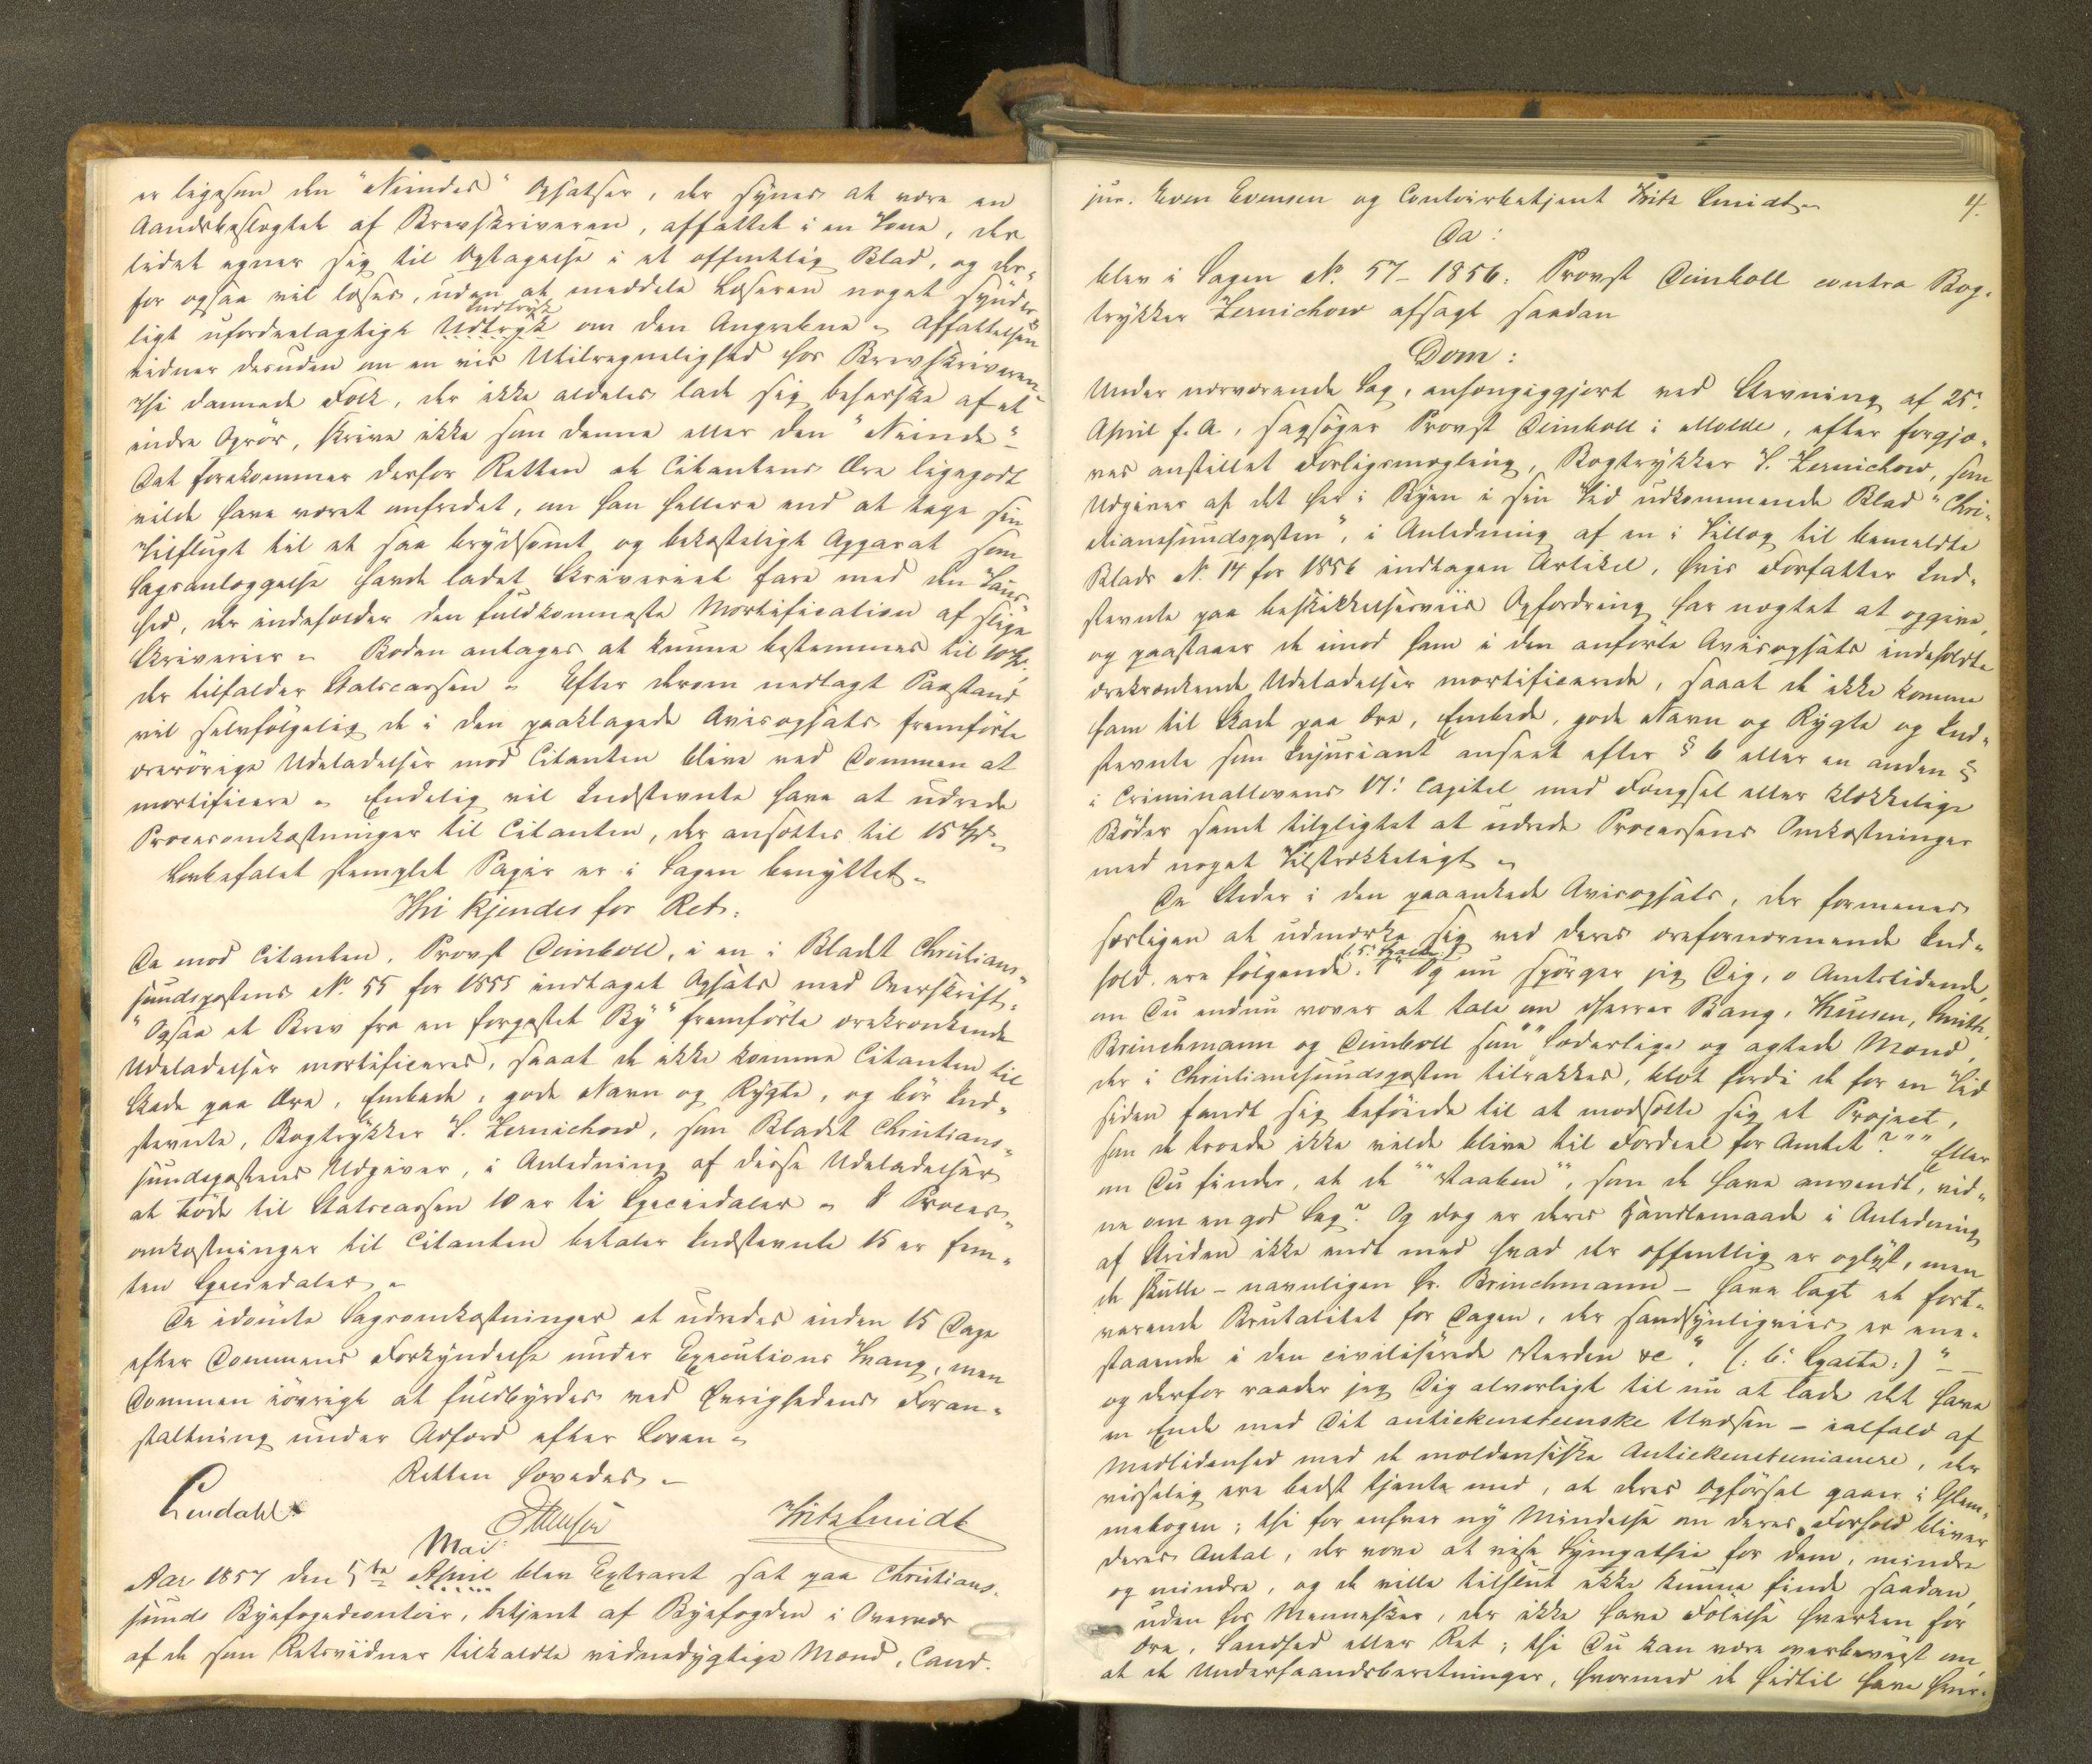 er ligesom den "Niendes" Opsatser, der synes at være en
Aandsbeslægtet af Brevskriveren, affattet i en Tone, der
lidet egner sig til Optagelse i et offentlig Blad, og der-
for ogsaa vil læses, uden at meddele Læseren noget synder-
Indtryk
ligt ufordeelagtigt Udtryk om den Angrebne. Affattelsen
vidner desuden om en vis Utilregnelighed hos Brevskriveren
thi dannede Folk, der ikke aldeles lade sig beherske af et
indre Oprør, skrive ikke som denne eller den "Niende"
Det forekommer derfor Retten at Citantens Ære ligegodt
vilde have været umfredet, om han hellere end at tage sin
Tilflugt til et saa brydsomt og bekosteligt Apparat som
Sagsanlæggelse havde ladet Skriveriet fare med den Taus-
hed, der indeholder den fuldkomneste Mortification af slige
Skriverier. Boden antages at kunne bestemmes til 10 Spd.
der tilfalder Statscassen. Efter derom nedlagt Paastand
vil selvfølgelig de i den paaklagede Avisopsats fremførte
ærerørige Udeladelser mod Citanten blive ved Dommen at
mortificere. Endelig vil Indstevnte have at udrede
Procesomkostninger til Citanten, der ansættes til 15 Spd.
Lovbefalet stemplet Papir er i Sagen benyttet.
Thi kjendes for Ret:
De mod Citanten, Provst Deinboll, i en i Bladet Christian-
sundspostens No. 55 for 1855 indtaget Opsats med Overskrift:
"Ogsaa et Brev fra en forpestet By" fremførte ærekrænkende
Udeladelser mortificeres, saaat de ikke komme Citanten til
Skade paa Ære, Embede, gode Navn og Rygte, og bør Ind-
stevnte, Bogtrykker T. Zernichow, som Bladet Christian-
sundspostens Udgiver, i Anledning af disse Udeladelser
at bøde til Statscassen 10 er ti Speciedaler. I Proces-
omkostninger til Citanten betaler Indstevnte 15 er fem-
ten Speciedaler.
De idømte Sagsomkostninger at udredes inden 15 Dage
efter Dommens Forkyndelse under Executions Tvang, men
Dommen iøvrigt at fuldbyrdes ved Øvrighedens Foran-
staltning under Adfærd efter Loven.
Retten hævedes.
Lindahl
Fritz Smidt
Mai
Aar 1857 den 5te April blev Extraret sat paa Christian-
sunds Byefogedcontoir, betjent af Byefogden i Overvær
af de som Retsvidner tilkaldte vidnedygtige Mænd, Cand.
4.
jur. Even Evensen og Contoirbetjent Fritz Smidt.
Da:
blev i Sagen No. 57-1856: Provst Deinboll contra Bog-
trykker Zernichow afsagt saadan
Dom:
Under nærværende Sag, anhængiggjort ved Stevning af 25.
April f. A., sagsøger Provst Deinboll i Molde, efter forgjæ-
ves anstillet Forligsmægling, Bogtrykker T. Zernichow, som
Udgiver af det her i Byen i sin Tid udkommende Blad "Chri-
stiansundsposten", i Anledning af en i Tillæg til bemeldte
Blads No. 14 for 1856 indtagen Artikel, hvis Forfatter Ind-
stevnte paa beskikkelsesviis Opfordring har nægtet at opgive,
og paastaaer de imod ham i den anførte Avisopsats indeholdte
ærekrænkende Udeladelser mortificerede, saaat de ikke komme
ham til Skade paa Ære, Embede, gode Navn og Rygte og Ind-
stevnte som Injuriant anseet efter § 6 eller en anden §
i Criminallovens 17: Capitel med Fængsel eller klækkelige
Bøder samt tilpligtet at udrede Processens Omkostninger
med noget Tilstrækkeligt.
De Steder i den paaankede Avisopsats, der formenes
særligen at udmærke sig ved deres ærefornærmende Ind-
(:5: Spalte:)
hold, ere følgende: "Og nu spørger jeg Dig, o Amtstidende,
om Du endnu vover at tale om Herrer Bang, Thuesen, Smith,
Brinchmann og Deinboll som ""hæderlige og agtede Mænd,
der i Christiansundsposten tilrakkes, blot fordi de for en Tid
siden fandt sig beføiede til at modsætte sig et Project,
som de troede ikke vilde blive til Fordeel for Amtet?"" Eller
om Du finder, at de ""Vaaben"", som de have anvendt, vid-
ne om en god Sag? Og dog er deres Handlemaade i Anledning
af Striden ikke endt med hvad der offentlig er oplyst, men
de skulle - navnligen Hr. Brinchmann - have lagt et fort-
varende Brutalitet for Dagen, der sandsynligviis er ene-
staaende i den civiliserede Verden &c". (: 6: Spalte:) "
og derfor raader jeg Dig alvorligt til nu at lade det have
en Ende med Dit antickensteenske Uvæsen - ialfald af
Medlidenhed med de moldensiske Antickensteenianere, der
visselig ere bedst tjente med, at deres Opførsel gaaer i Glem-
mebogen; thi for enhver ny Mindelse om deres Forhold bliver
deres Antal, der vove at vise Sympathie for dem, mindre
og mindre, og de ville tilsidst ikke kunne finde saadan,
uden hos Mennesker, der ikke have Følelse hverken for
Ære, Sandhed eller Ret; thi Du kan være overbeviist om,
at de Underhaandsberetninger, hvormed de hidtil have hver-